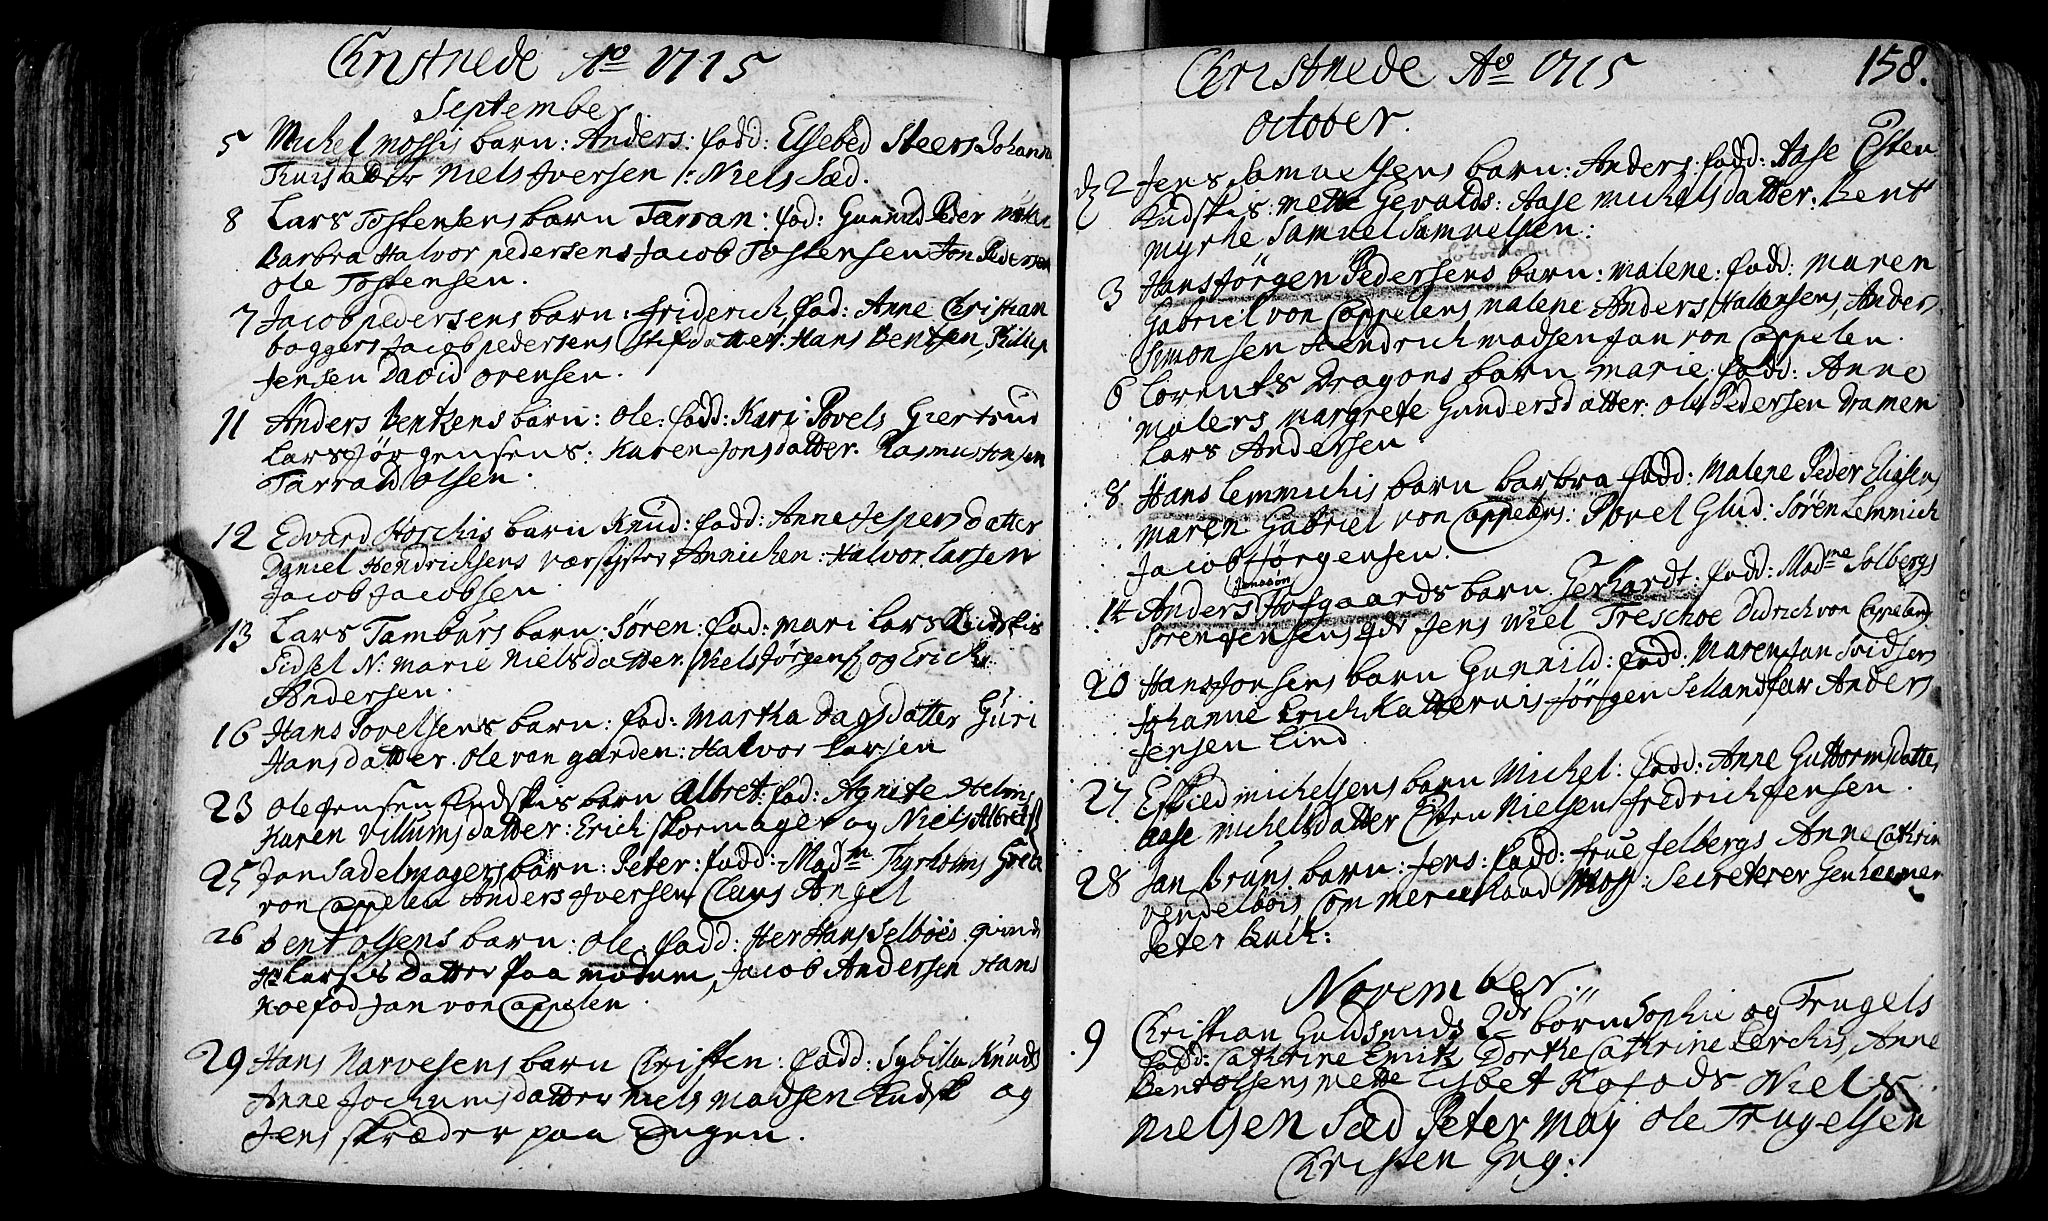 Christnede Aº 1715
September
5 Michel mossis barn: Anders: fadd: Elsebed Steers Johanna
Knisdatter Niels Iversen /: Niels Sæd.
8 Lars Tostensens barn Tarran: fad: Gunnild Peder
Barbra Halvor pedersens Jacob Tostensen Jon Pedersen
Ole Tostensen.
7 Jacob pedersens barn: Friderich fad: Anne Christian
baggers Jacob pedersens Stifdatter: Hans Bentsen, Pillip
Jensen David Orensen.
11 Anders Bentsens barn: Ole: fadd: Kari Povels Giertrud
Lars Jørgensens: Karen Jonsdatter. Rasmus Hansen
Tarrald Olsen.
12 Edvard Horchis barn Knud: fadd: Anne Jespersdatter
Daniel Hendrichsens værsyster Annichen: Halvor Larsen
Jacob Jacobsen
13 Lars Tamburs barn: Søren: fad: Mari Lars Kudskis
Sidsel N: Marie Nielsdatter. Niels Jørgens og Erich
Andersen.
16 Hans Povelsens barn: fad: Martha Dagsdatter Guri
Hansdatter. Ole von garden: Halvor Larsen
23 Ole Jensen Kudskis barn Albret: fad: Agnete Helms
Karen Villumsdatter: Erich skormager og Niels Albrets
25 Jan Sadelmagers barn: Peter: fadd: Madm Thyrholms Greta
von Cappelen Anders Iversen Claus Angel
26 Bent Olsens barn: Ole fadd: Her Hans Selboes qvinde
Hr Larsis Datter paa Modum, Jacob Andersen Hans
Koefod Jan von Cappelen.
29 Hans Narvesens barn Christen: fadd: Sybilla Knuds
Anne Jochumsdatter Niels Madsen Kudsk og
Jens skræder paa Engen.
Christnede Aº 1715
158.
October.
2 Jens Samuelsens barn: Anders: fadd: Aase Østen
Kudskis: Mette Gevalds: Aase Michelsdatter: Bent
Myrhe Samuel Samuelsen:
3 Hans Jørgen Pedersens barn: Malene: fadd: Maren
Gabriel von Cappelens Malene Anders Halvensens, Anders
Simonsen Hendrich Madsen Jan von Cappelen.
6 Lorents Dragons barn Marie: fadd: Anne
Malers Margrete Gundersdatter. Ole Pedersen Dramen
Lars Andersen
8 Hans Lemmichis barn barbra fadd: Malene Peder Eliesens
Maren Gabriel von Cappelens: Povel Glud: Søren Lemmich
Jacob Jørgensen.
14 Anders Jonassøn Hofgaards barn Gerhardt: fadd: Madme Solbergs
Søren Jensens qde Jens Wiel Treschoe Didrich von Cappelens
20 Hans Jonsens barn Gunnild: fadd: Maren Jan Svidsens
Johanne Erich Kattervis Jørgen Sellandfær Anders
Jensen Lind
27 Eskild Michelsens barn Michel: fadd: Anne Guttormsdatter
Aase Michelsdatter Østen Nielsen Fredrich Jensen.
28 Jan Bruns barn: Jens: fadd: Frue Felbergs Anne Cathrin
vendelbois Commerceraad Moss: Secreterer
Peter Buch:
November.
9 Christian Guldsmids 2de børn Sophie og Trugels
fadd: Cathrine Emitz Dorthe Cathrine Lerchis, Anne
Bent Olsens Mette Lisbet Kofods Niels
Nielsen Sæd Peter May Ole Trugelsen
Christen Gng: